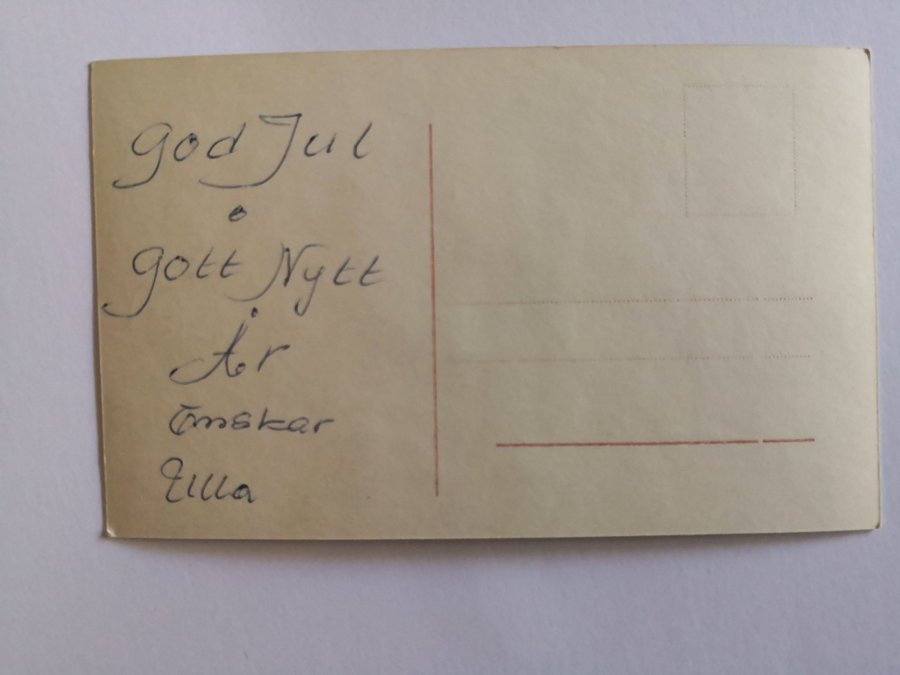 God Jul
o
Gott Nytt
År
Önskar
Ulla